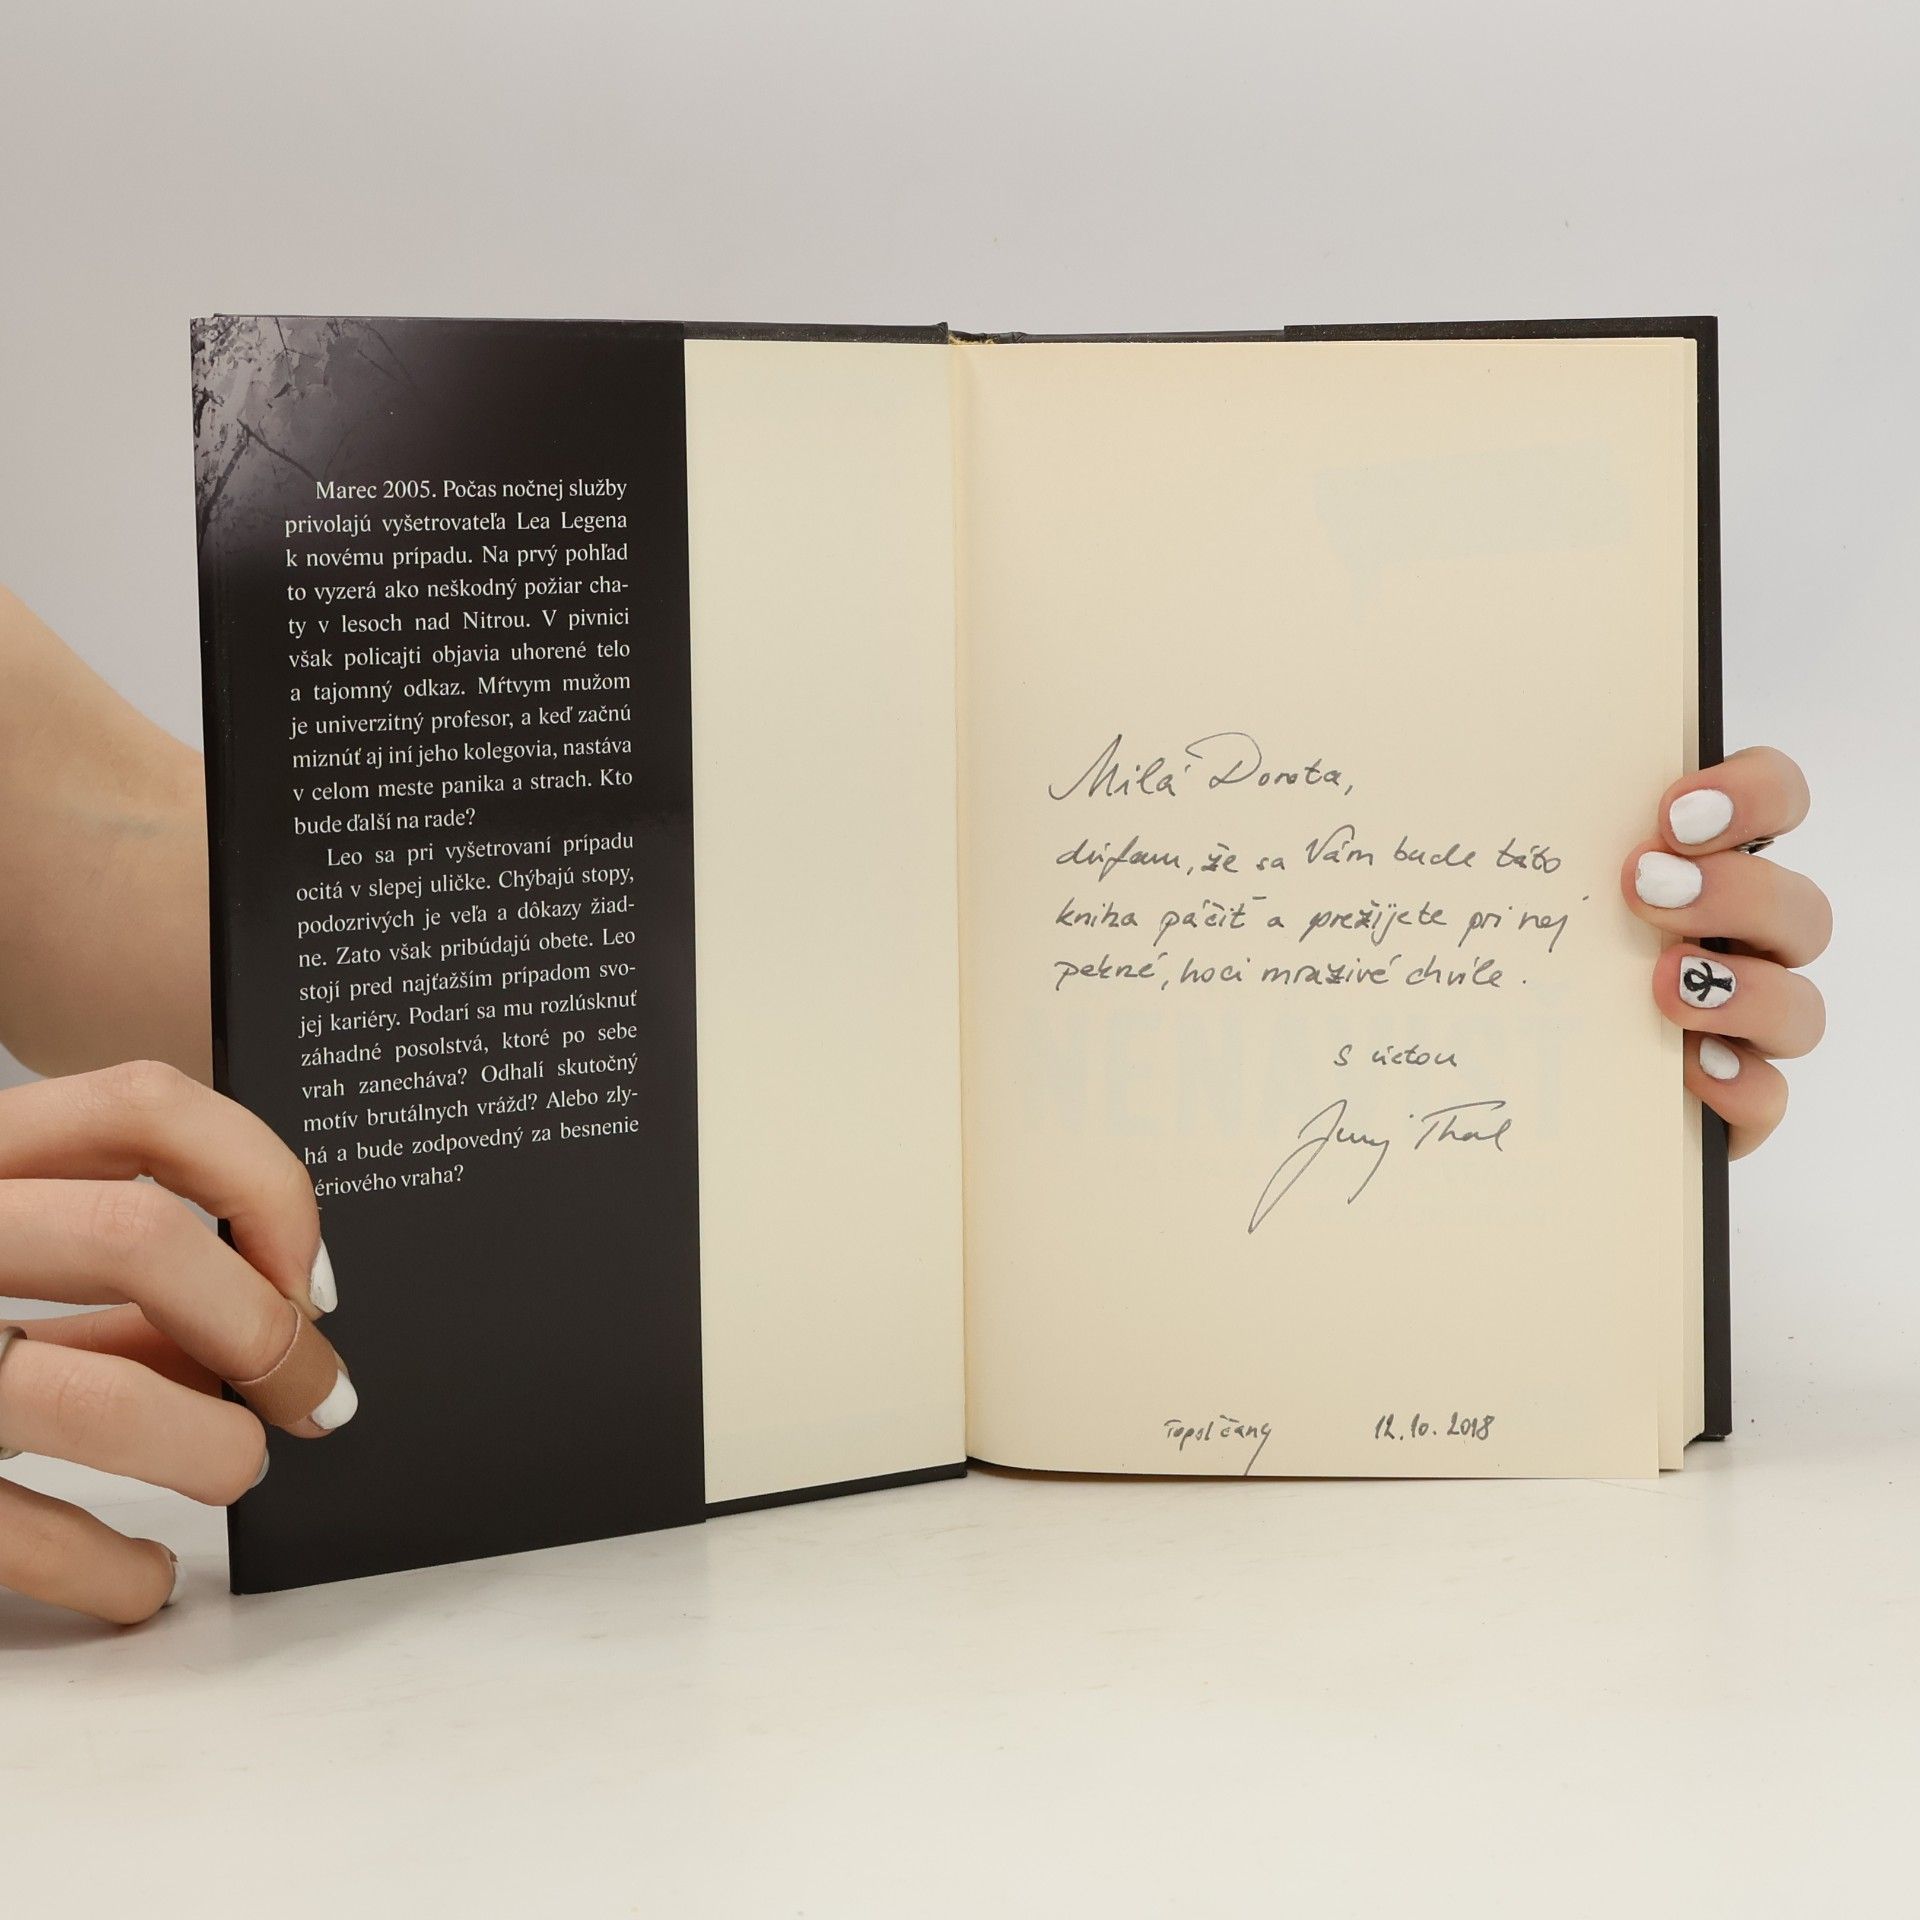 Marec 2005. Počas nočnej služby
privolajú vyšetrovateľa Lea Legena
k novému prípadu. Na prvý pohľad
to vyzerá ako neškodný požiar cha-
ty v lesoch nad Nitrou. V pivnici
však policajti objavia uhorené telo
a tajomný odkaz. Mŕtvym mužom
je univerzitný profesor, a keď začnú
miznúť aj iní jeho kolegovia, nastáva
v celom meste panika a strach. Kto
bude ďalší na rade?
Leo sa pri vyšetrovaní prípadu
ocitá v slepej uličke. Chýbajú stopy,
podozrivých je veľa a dôkazy žiad-
ne. Zato však pribúdajú obete. Leo
stojí pred najťažším prípadom svo-
jej kariéry. Podarí sa mu rozlúsknuť
záhadné posolstvá, ktoré po sebe
vrah zanecháva? Odhalí skutočný
motív brutálnych vrážd? Alebo zly-
há a bude zodpovedný za besnenie
ériového vraha?
Milá Dorota,
dúfam, že sa Vám bude táto
kniha páčiť a prežijete pri nej
pekné, hoci mrazivé chvíle.
S úctou
Juraj Thal
Topoľčany 12.10.2018